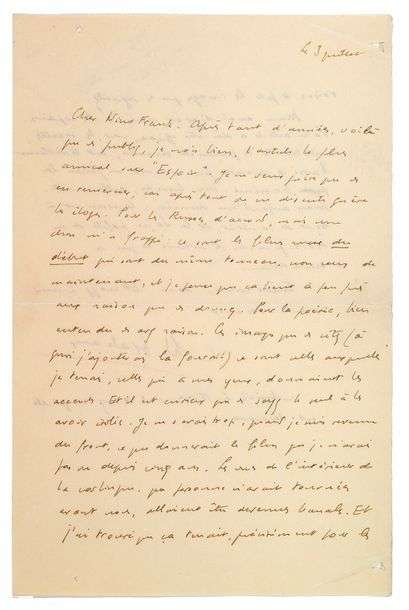 le 3 juillet
Cher Nino Frank. Après tant d'années, voilà
que vous publiez, je crois bien, l'article le plus
amical sur "Espoir". Je ne veux guère que vous
en remercier, car après tout on ne discute guère
les éloges. Pour les Russes, d'accord, mais une
chose m'a frappé : ce sont les films russes du
début qui sont du même tonneau, non ceux de
maintenant, et je pense que ça tient à peu près
aux raisons que vous donnez. Pour la poésie, bien
entendu vous avez raison. Les images que vous citez (à
quoi j'ajouterais la fourmi) ce sont celles auxquelles
je tenais, celles qui à mes yeux, donnaient les
accents. Et il est curieux que vous soyez le seul à les
avoir isolées. Je ne savais trop, quand je suis revenu
du front, ce que donnerait le film que je n'avais
pas vu depuis cinq ans. Les vues de l'intérieur de
la carlingue, que personne n'avait tournées
avant nous, allaient être devenues banales. Et
j'ai trouvé que ça tenait, précisément pour les